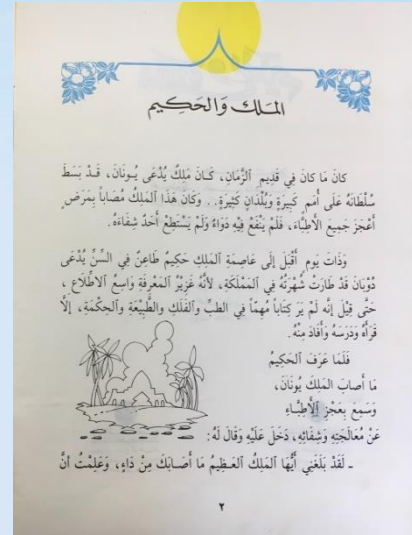 المَلك وَالحَكيم
كانَ مَا كانَ فِي قَدِيمِ ٱلزَّمَانِ، كَـانَ مَلِكٌ يُدْعَى يُـونَانَ، قَـدْ بَسَطَ
سُلْطَانَهُ عَلَى أُمَمٍ كَبِيرَةٍ وَبُلْدَانٍ كَثِيرَةٍ.. وَكَانَ هَذَا ٱلْمَلِكُ مُصَاباً بِمَرَضٍ
أَعْجَزَ جَمِيعَ الأَطِبَّاءَ، فَلَمْ يَنْفَعْ فِيهِ دَوَاءٌ وَلَمْ يَسْتَطِعْ أَحَدٌ شِفَاءَهُ.
وَذَاتَ يَومٍ أَقْبَلَ إِلَى عَاصِمَةِ ٱلْمَلِكِ حَكِيمٌ طَاعِنٌ فِي السِّنِّ يُدْعَى
دُوْبَانَ قَدْ طَارَتْ شُهْرَتُهُ فِي ٱلْمَمْلَكَةِ، لأَنَّهُ غَزِيْرُ ٱلْمَعْرِفَةِ وَاسِعُ ٱلاِطِّلَاعِ ،
حَتَّى قِيْلَ إِنَّه لَمْ يَرَ كِتَاباً مُهِمّاً فِي الطِّبِّ وٱلْفَلَكِ وَالطَّبِيْعَةِ وَٱلْحِكْمَةِ، إِلَّا
قَرَأَهُ وَدَرَسَهُ وَأَفَادَ مِنْهُ.
فَلَمَّا عَرَفَ ٱلحَكِيمُ
مَا أَصابَ ٱلمَلِكَ يُونَانَ،
وَسَمِعَ بِعَجْزِ ٱلأَطِبَّاءِ
عَنْ مُعَالَجَتِهِ وَشِفَائِهِ، دَخَلَ عَلَيْهِ وَقَالَ لَهُ:
ـ لَقَدْ بَلَغَنِي أَيُّهَا ٱلْمَلِكُ ٱلعَظِيمُ مَا أَصَابَكَ مِنْ دَاءٍ، وَعَلِمْتُ أنَّ
٢